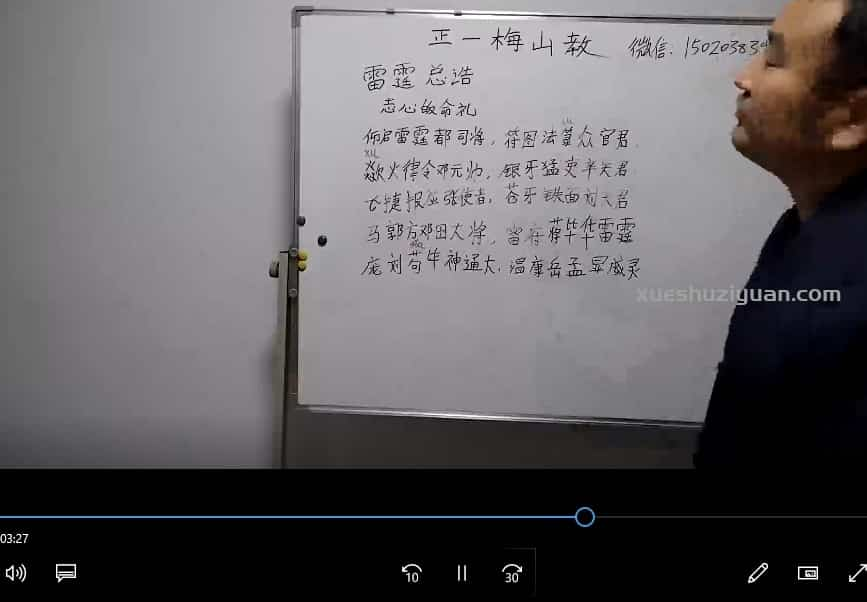 正一梅山教 微信: 150203839
雷霆总浩
志心皈命礼
仰启雷霆都司将, 符图法箓众官君.
LU
XU
欻火律令邓元帅, 银牙猛吏辛天君.
飞捷报应张使者, 苍牙铁面刘天君
马郭方邓田大将,
毕华雷霆
庞刘苟毕神通大. 温康岳孟显威灵
xueshuziyuan.com
03:27
10
30